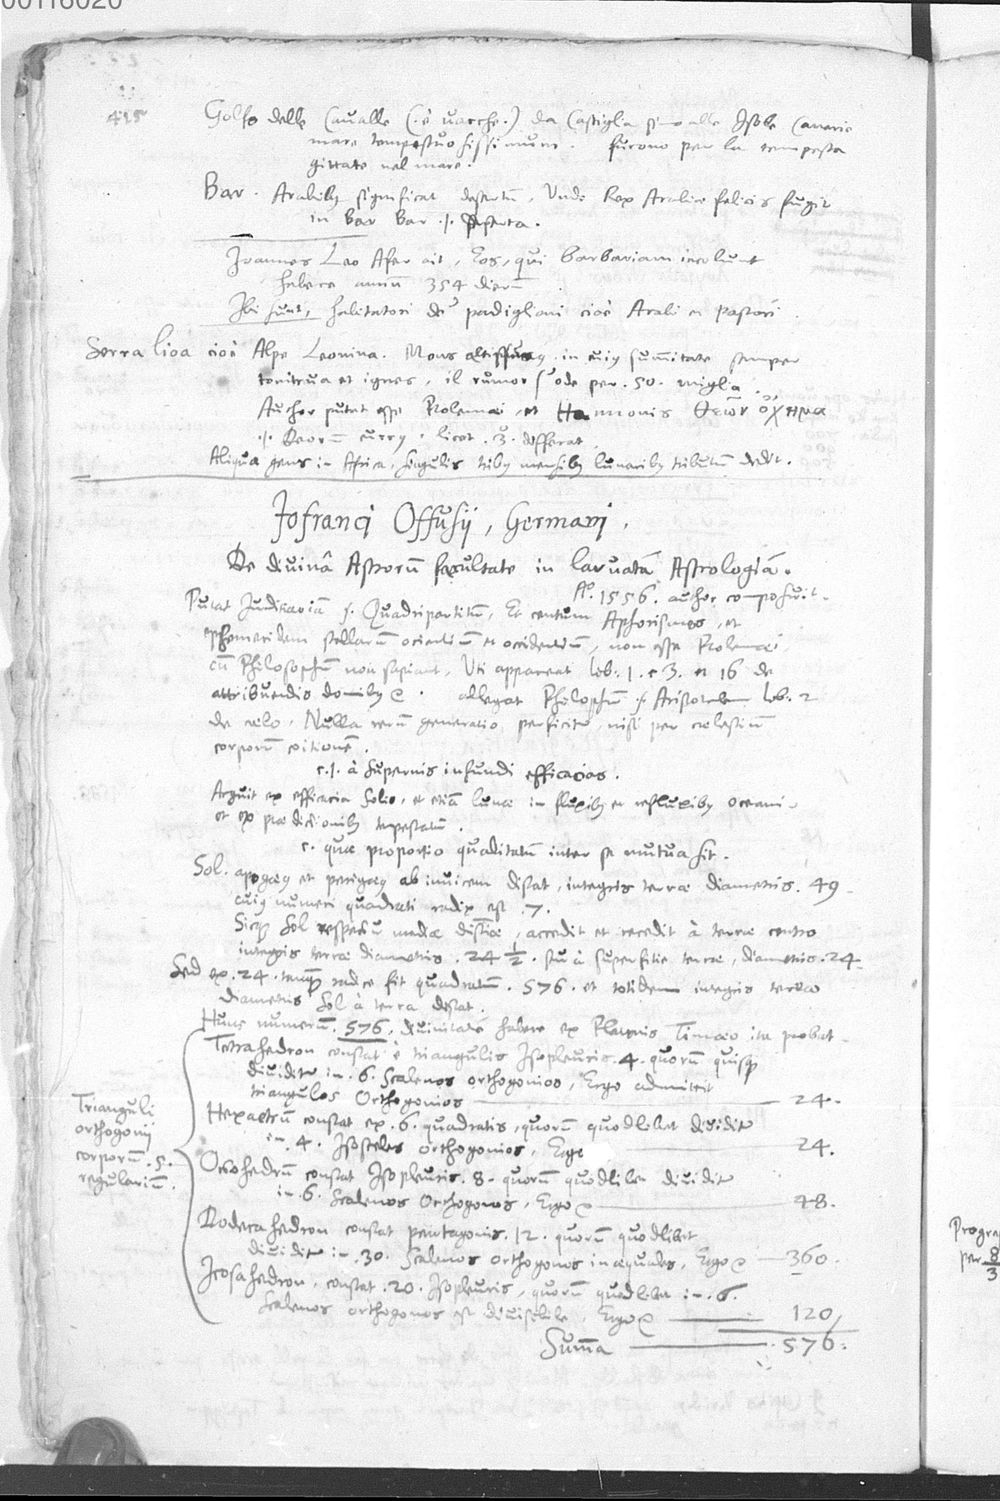 00118020
415
Golfo delle Cavalle (.è vacche.) da Castiglia sino alle Isole Canarie
mare tempestuosissimum. furono per la tempesta
gittate nel mare.
Bar. Arabibq significat desertū, Unde Rex Arabiæ felicis fugit
in Bar Bar .i. deserta.
Joannes Leo Afer ait, Eos, qui Barbariam incolunt
habere annū 354 dierū
Ibi sunt, habitatori de padiglioni cioè Arabi et pastori
Serra lioa cioè Alpe Leonina. Mons altissimq in cuiq sum̄itate semper
tonitrua et ignes, il rumor s'ode per .50. miglia.
Author putat esse Ptolemæi et Hannonis θεῶν ὄχημα
.i. Deorū currq, licet .3. differat
Aliqua gens in Africa, singulis tribq mensibq lunaribq tributū dedit.
Jofranci Offusij, Germani.
De divinâ Astrorū facultate in larvatā Astrologiā.
Aº. 1556. author composuit.
Putat Iudiciariā s. Quadripartitum, Et centum Aphorismos, et
ephemeridem stellarū orientiū et occidentiū, non esse Ptolemæi
cū Philosophū non sapiant, Uti appareat lib. 1. c 3. et 16 de
attribuendis domibq &c. allegat Philosophū s. Aristotelem lib. 2
de cælo. Nulla rerū generatio perficitr, nisi per cælestiū
corporū coitionē.
c.1. à supernis infundi efficacias.
Arguit ex efficacia Solis, et etiā lunæ in fluxibq et refluxibq oceani.
et ex prædictionibq tempestatū.
c. quæ proportio qualitatū inter se mutua sit.
Sol. apogæq et perigæq ab invicem distat, integris terræ diametris. 49
cuiq numeri quadrati radix est .7.
Sicq Sol respectu mediæ distāciæ, accedit et recedit à terræ centro
integris terræ diametris .24 1/2. seu à superficie terræ, diametris .24
Sed ex .24. tanq radice fit quadratum .576. et totidem integris terræ
diametris Sol à terra distat.
Hunc numerū .576. divinitatē habere ex Platonis Timæo ita probat.
Trianguli
orthogonij
corporū .5.
regulariū.
Tetrahedron constat è triangulis Isopleuris .4. quorū quisq
dividitr in .6. Scalenos orthogonios, Ergo admittit
triangulos Orthogonios 24.
Hexaedrū constat ex .6. quadratis, quorū quodlibet dividitr
in .4. Isosceles orthogonios, Ergo 24.
Octohedrū constat Isopleuris .8. quorū quodlibet dividitr
in .6. Scalenos Orthogonos, Ergo &c 48.
Dodecahedron constat pentagonis .12. quorū quodlibet
dividitr in .30. Scalenos orthogonos inæquales, Ergo &c 360.
Icosahedron, constat .20. Isopleuris, quorū quodlibet in .6.
Scalenos orthogonos est divisibile, Ergo &c 120
Sum̄a 576.
Progre
per 8
3